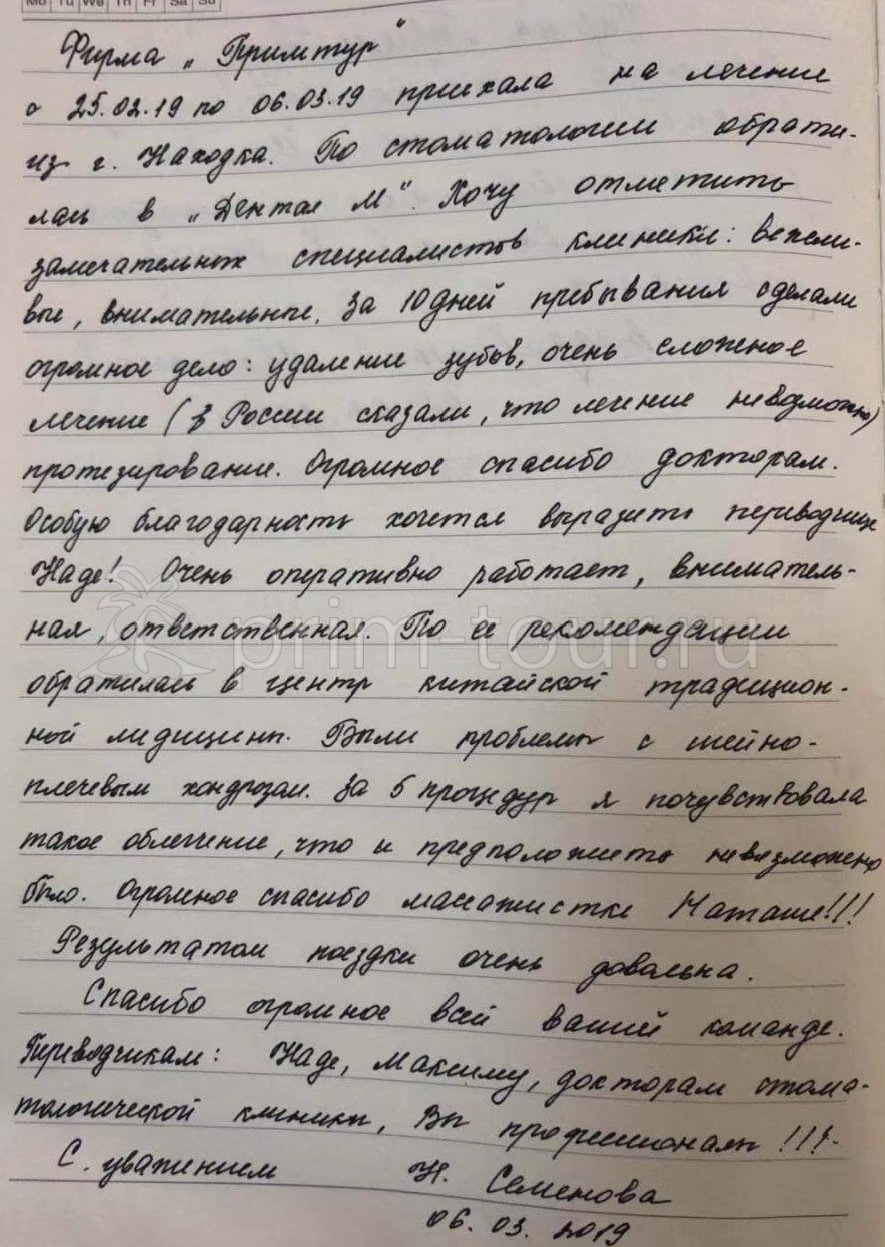 Mo Tu We Th Fr Sa Su
Фирма „Примтур"
с 25.02.19 по 06.03.19 приехала на лечение
из г. Находка. По стоматологии обрати-
лась в „Дентал М". Хочу отметить
замечательных специалистов клиники: вежли-
вые, внимательные. За 10 дней пребывания сделали
огромное дело: удаление зубов, очень сложное
лечение (в России сказали, что лечение невозможно)
протезирование. Огромное спасибо докторам.
Особую благодарность хочется выразить переводчице
Наде! Очень оперативно работает, вниматель-
ная, ответственная. По ее рекомендации
обратилась в центр китайской традицион-
ной медицины. Были проблемы с шейно-
плечевым хондрозом. За 5 процедур я почувствовала
такое облегчение, что и предположить невозможно
было. Огромное спасибо массажистке Наташе!!!
Результатом поездки очень довольна.
Спасибо огромное всей вашей команде.
Переводчикам: Наде, Максиму, докторам стома-
тологической клиники, Вы профессионалы!!!
С уважением Н. Семенова
06.03.2019
prim-tour.ru